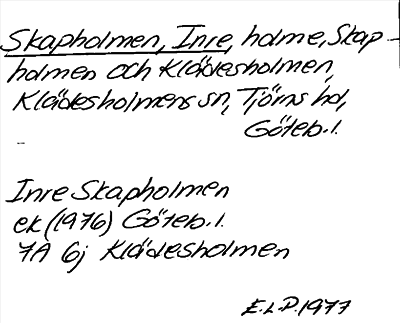 Skapholmen, Inre, holme, Skap-
holmen och Klädesholmen,
Klädesholmens sn, Tjörns hd,
Göteb. l.
Inre Skapholmen
ek (1976) Göteb. l.
7A 6j Klädesholmen
E.L.P. 1977